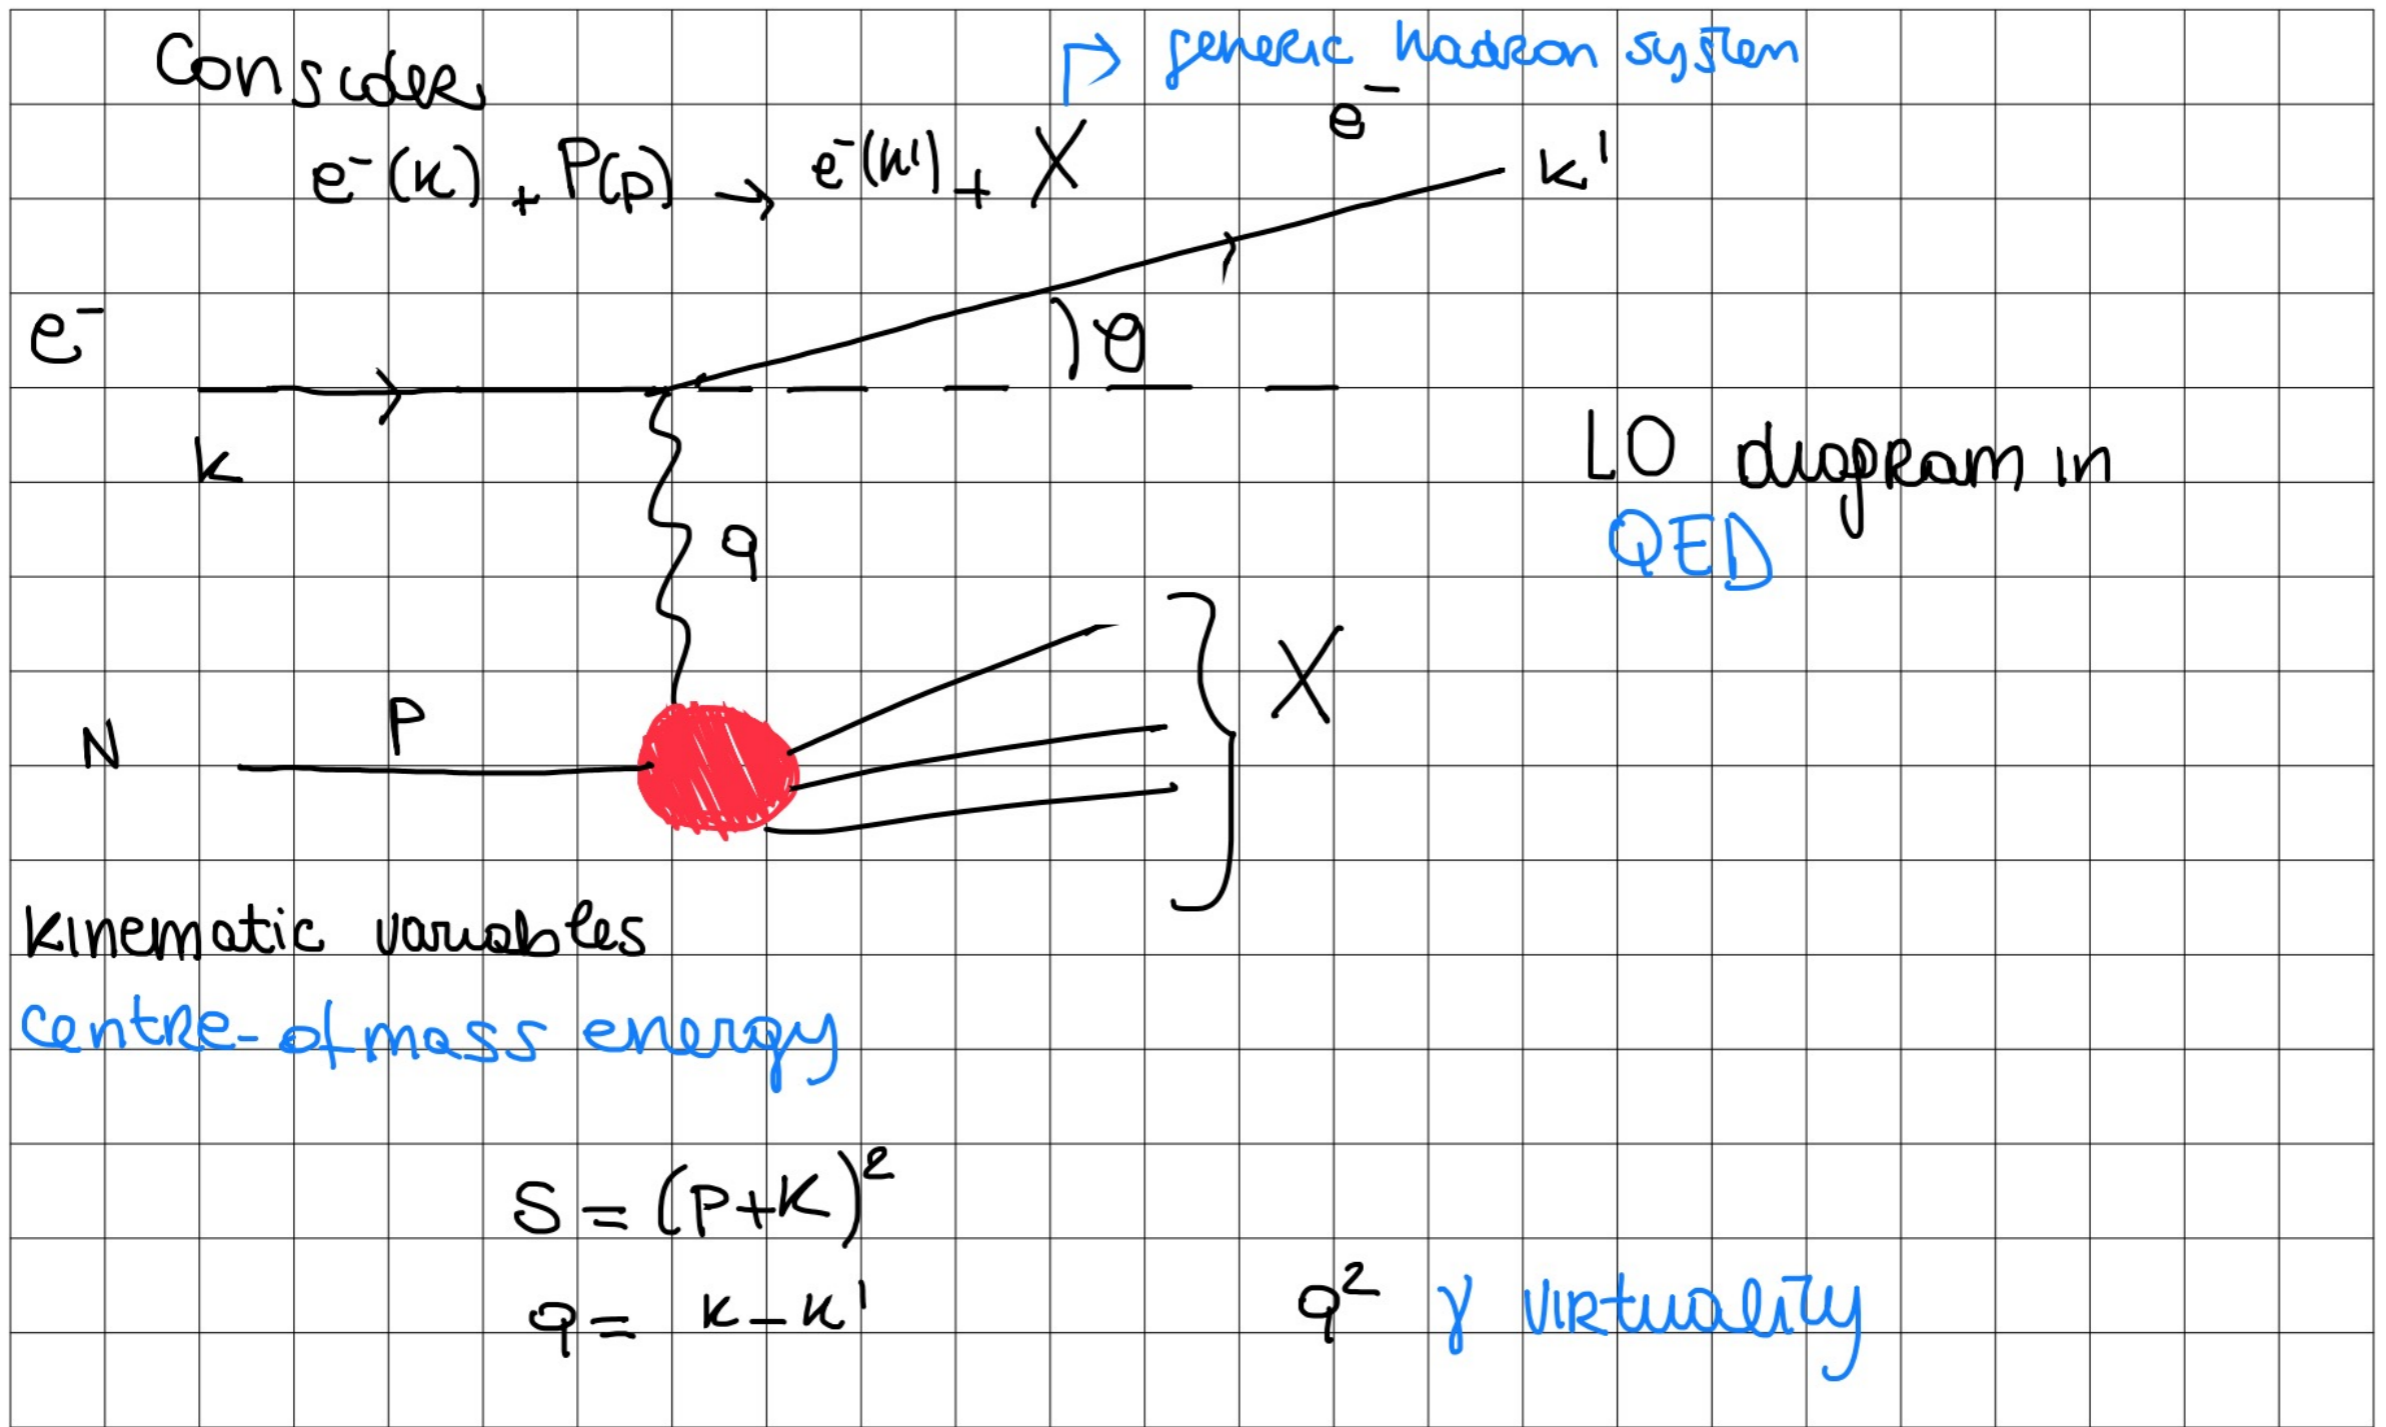 Consider
generic hadron system
e⁻(k) + P(p) → e⁻(k') + X
e⁻
k'
e⁻
θ
k
LO diagram in
QED
q
X
P
N
Kinematic variables
centre-of mass energy
S = (P+K)²
q = k - k'
q² γ virtuality